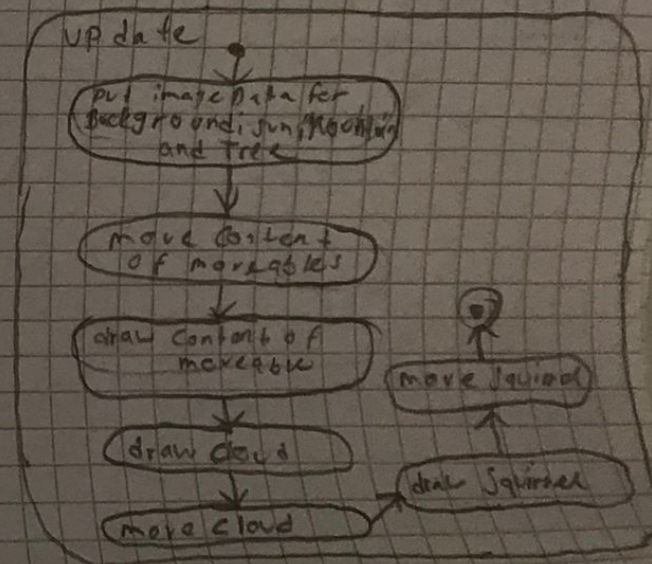 update
put imageData for
Background, sun, Mountain
and Tree
move Content
of moveables
draw Content of
moveable
draw cloud
move cloud
draw Squirrel
move Squirrel